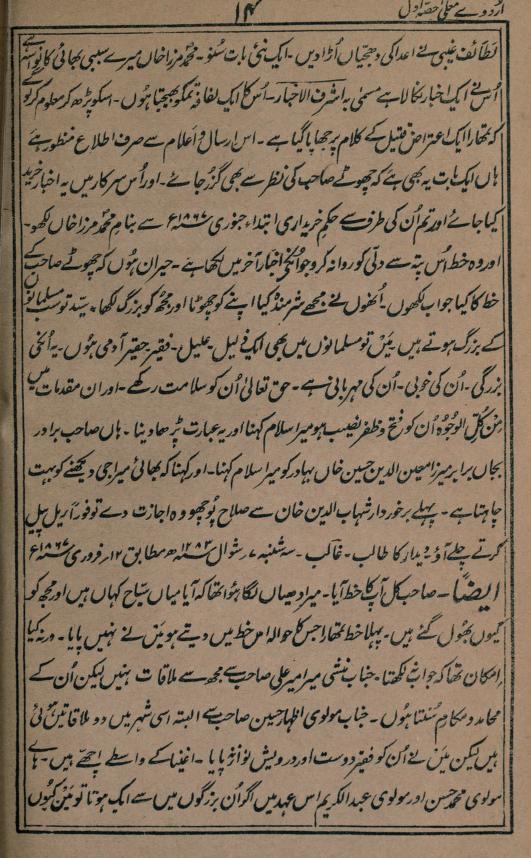 اردوے معلیٰ حصۂ اول
۱۴
لطائف غیبی نے اعدا کی دھجیاں اُڑا دیں۔ ایک نئی بات سنو۔ محمد مرزا خاں میرے سببی بھائی کا نواسہ ہے
اُس نے ایک اخبار نکالا ہے مسمیٰ بہ اشرف الاخبار۔ اُس کا ایک لفافہ تمکو بھیجتا ہوں۔ اسکو پڑھ کر معلوم کرو گے
کہ تمھارا ایک اعتراض قتیل کے کلام پر چھاپا گیا ہے۔ اس ارسال و اعلام سے صرف اطلاع منظور ہے
ہاں ایک بات یہ بھی ہے کہ چھوٹے صاحب کی نظر سے بھی گزر جائے۔ اور اُس سرکار میں یہ اخبار خرید
کیا جائے اور تم اُن کی طرف سے حکم خریداری ابتداء جنوری ۱۸۶۷ء سے بنام محمد مرزا خاں لکھو۔
اور وہ خط اُس پتہ سے دلی کو روانہ کرو جو اخبار آخر میں لکھا ہے۔ حیران ہوں کہ چھوٹے صاحب کے
خط کا کیا جواب لکھوں۔ اُنھوں نے مجھے شرمندہ کیا اپنے کو چھوٹا اور مجھ کو بزرگ لکھا۔ سید تو سب مسلمانوں
کے بزرگ ہوتے ہیں۔ میں تو مسلمانوں میں بھی ایک ذلیل۔ علیل۔ فقیر حقیر آدمی ہوں۔ یہ اُنکی
بزرگی۔ اُن کی خوبی۔ اُن کی مہربانی ہے۔ حق تعالیٰ اُن کو سلامت رکھے۔ اور ان مقدمات میں
مِن کُلِّ الوُجُوہ اُن کو فتح و ظفر نصیب ہو میرا سلام کہنا اور یہ عبارت پڑھا دینا۔ ہاں صاحب برادر
بجاں برابر میرزا معین الدین حسین خاں بہادر کو میرا سلام کہنا۔ اور کہنا کہ بھائی میرا جی دیکھنے کو بہت
چاہتا ہے۔ پہلے برخوردار شہاب الدین خان سے صلاح پوچھو وہ اجازت دے تو فوراً ریل پیل
کرتے چلے آؤ دیدار کا طالب۔ غالب۔ سہ شنبہ ۷ شوال ۱۲۸۳ھ مطابق ۱۲ فروری ۱۸۶۷ء
ایضاً۔ صاحب کل آپ کا خط آیا۔ میرا دھیان لگا ہوا تھا کہ آیا میاں سیاح کہاں ہیں اور مجھ کو
کیوں بھول گئے ہیں۔ پہلا خط تمھارا جس کا حوالہ اس خط میں دیتے ہو میں نے نہیں پایا۔ ورنہ کیا
امکان تھا کہ جواب نہ لکھتا۔ جناب منشی میر امیر علی صاحب سے مجھ سے ملاقات نہیں لیکن اُن کے
محامد و مکارم سُنتا ہوں۔ جناب مولوی اظہار حسین صاحب سے البتہ اسی شہر میں دو ملاقاتیں ہوئی
ہیں لیکن میں نے اُن کو فقیر دوست اور درویش نواز نہ پایا۔ اغنیا کے واسطے اچھے ہیں۔ ہائے
مولوی محمد حسن اور مولوی عبد الکریم اس عہد میں اگر اُن بزرگوں میں سے ایک ہوتا تو میں کیوں